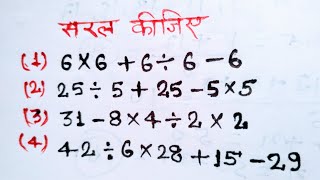 सरल कीजिए
(1) 6×6 + 6÷6 - 6
(2) 25÷5 + 25 - 5×5
(3) 31 - 8×4÷2×2
(4) 42÷6×28 + 15 - 29